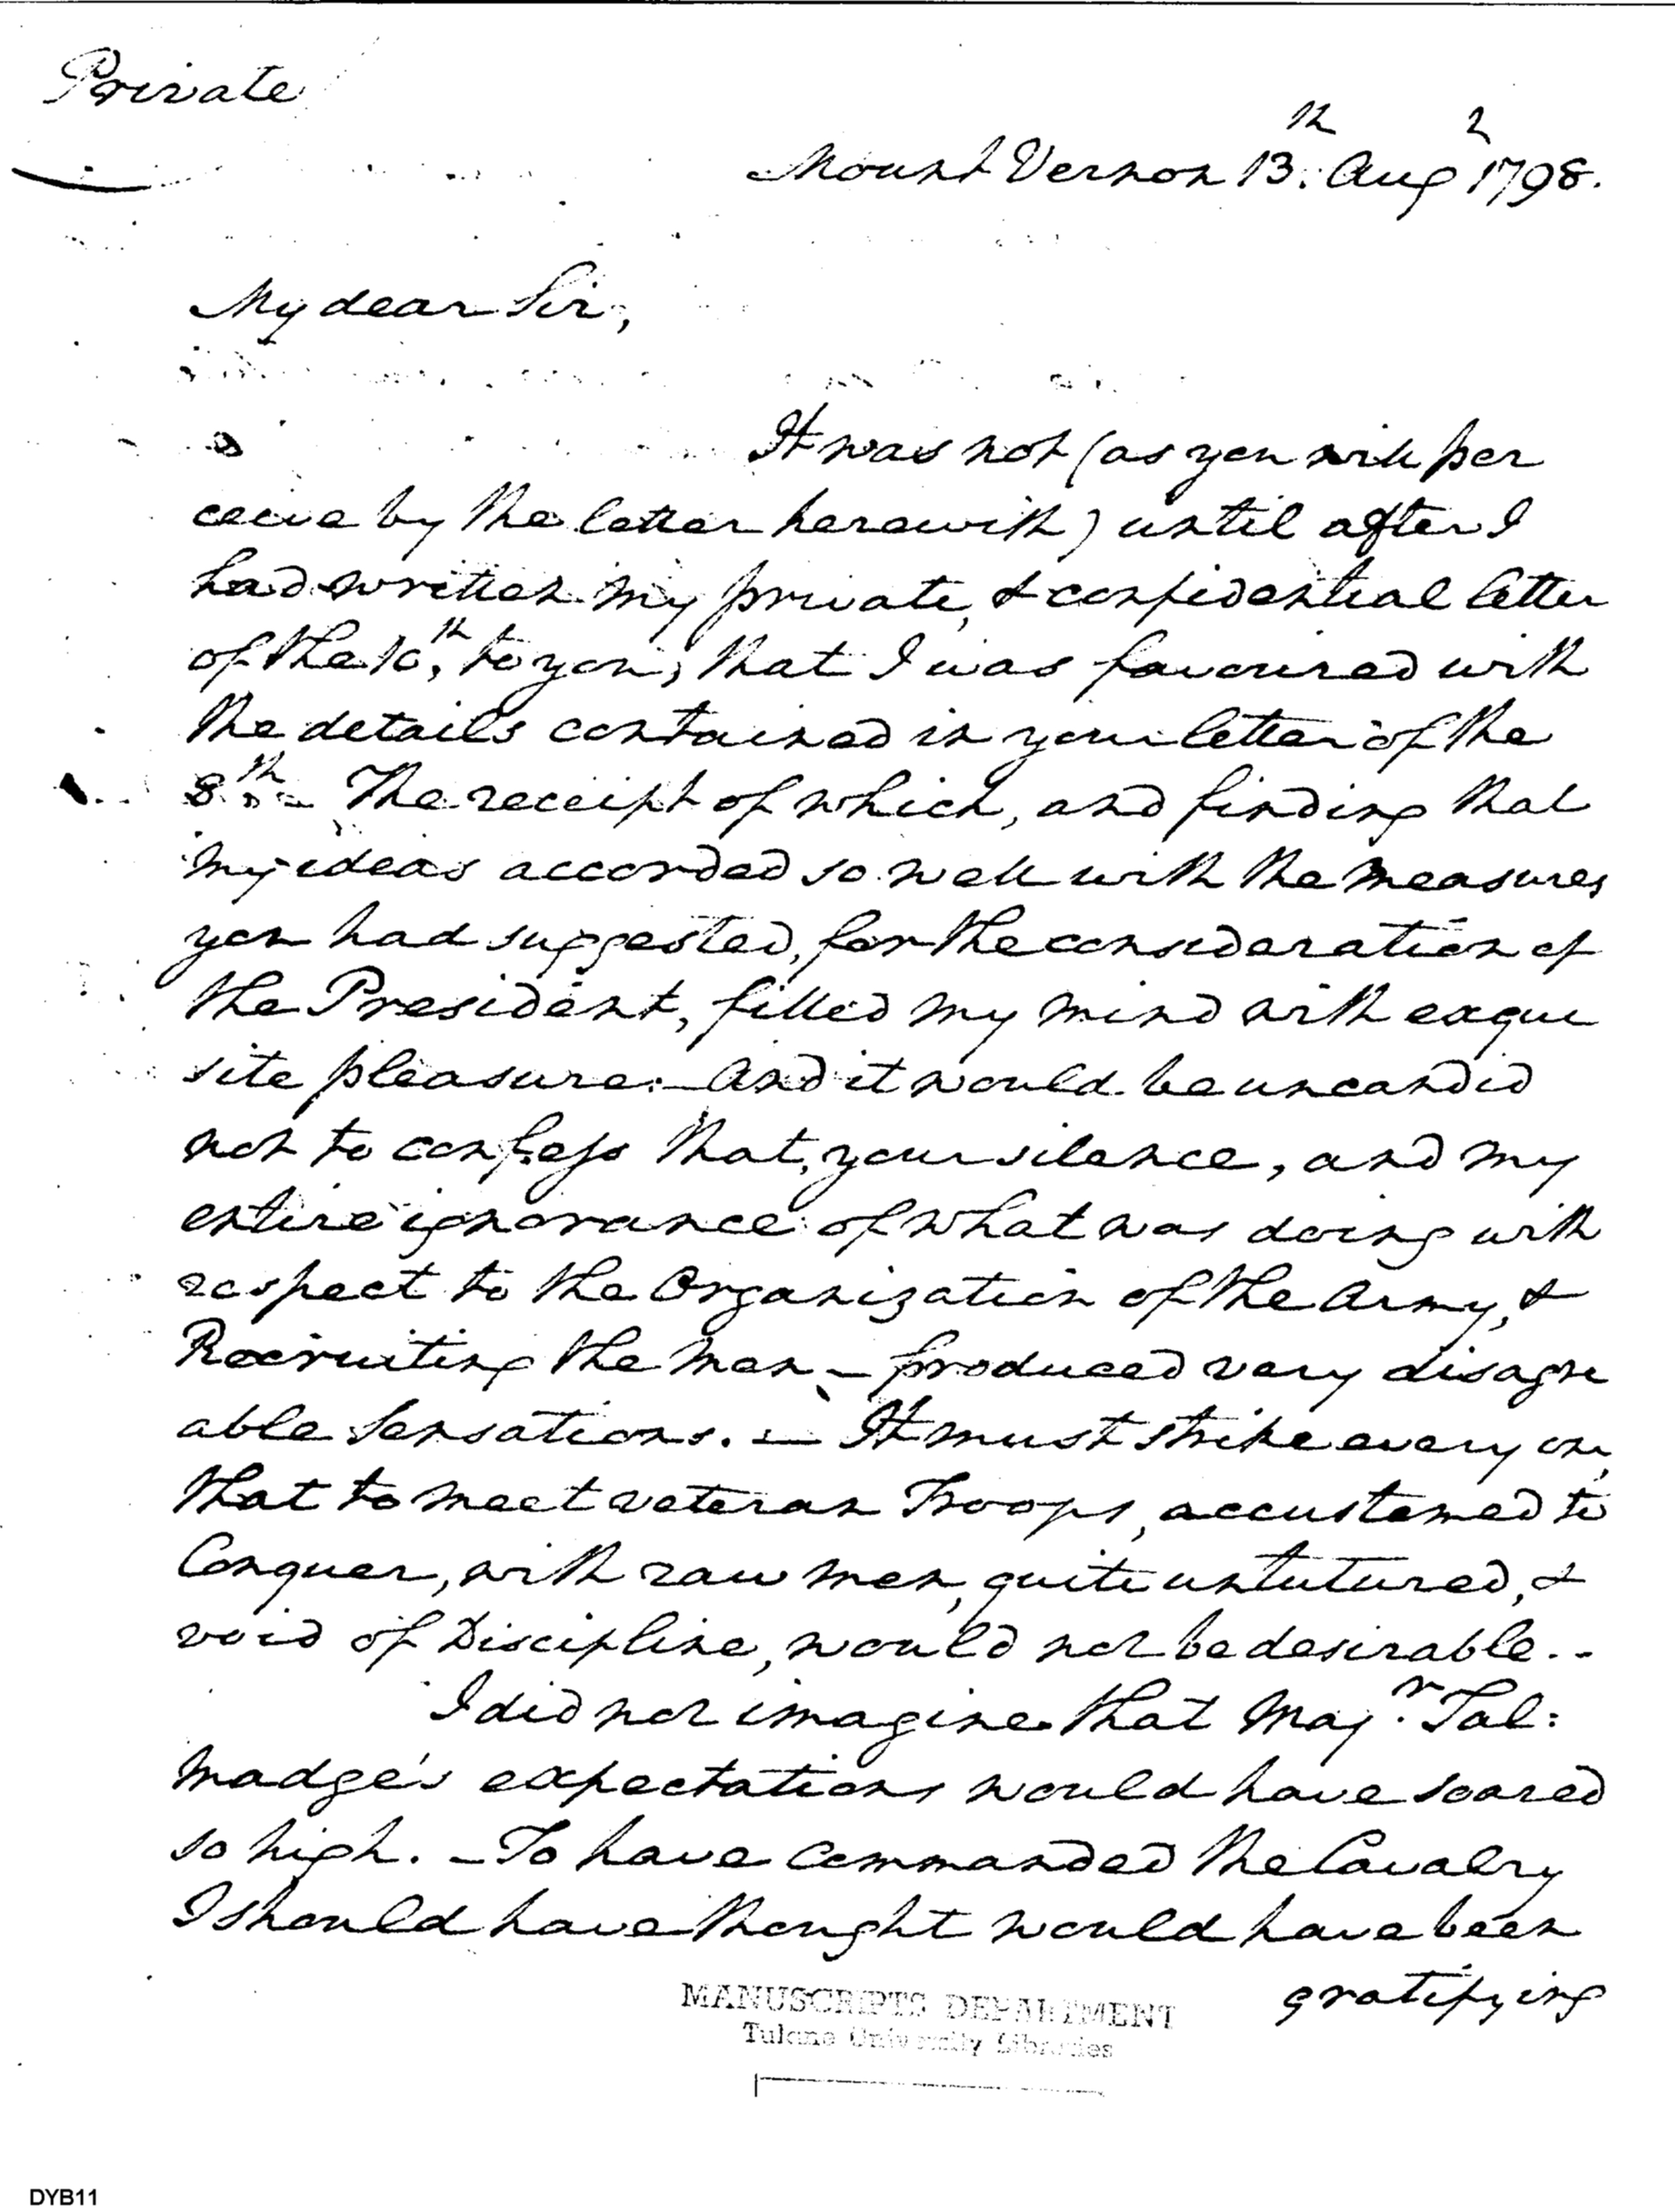 Private
Mount Vernon 13th. Augt 1798.
My dear Sir,
It was not (as you will per
ceive by the letter herewith) until after I
had written my private, & confidential letter
of the 10th, to you, that I was favoured with
the details contained in your letter of the
8th.– The receipt of which, and finding that
my ideas accorded so well with the measures
you had suggested, for the consideration of
the President, filled my mind with exqui
site pleasure:– And it would be uncandid
not to confess that, your silence, and my
entire ignorance of what was doing with
respect to the Organization of the Army, &
Recruiting the Men – produced very disagre
able Sensations. – It must strike every one,
that to meet veteran Troops, accustomed to
Conquer, with raw men, quite untutured, &
void of Discipline, would not be desirable..
I did not imagine that Majr. Tal:
madge's expectations would have soared
so high. – To have commanded the Cavalry
I should have thought would have been
gratifying
MANUSCRIPTS DEPARTMENT
Tulane University Libraries
DYB11